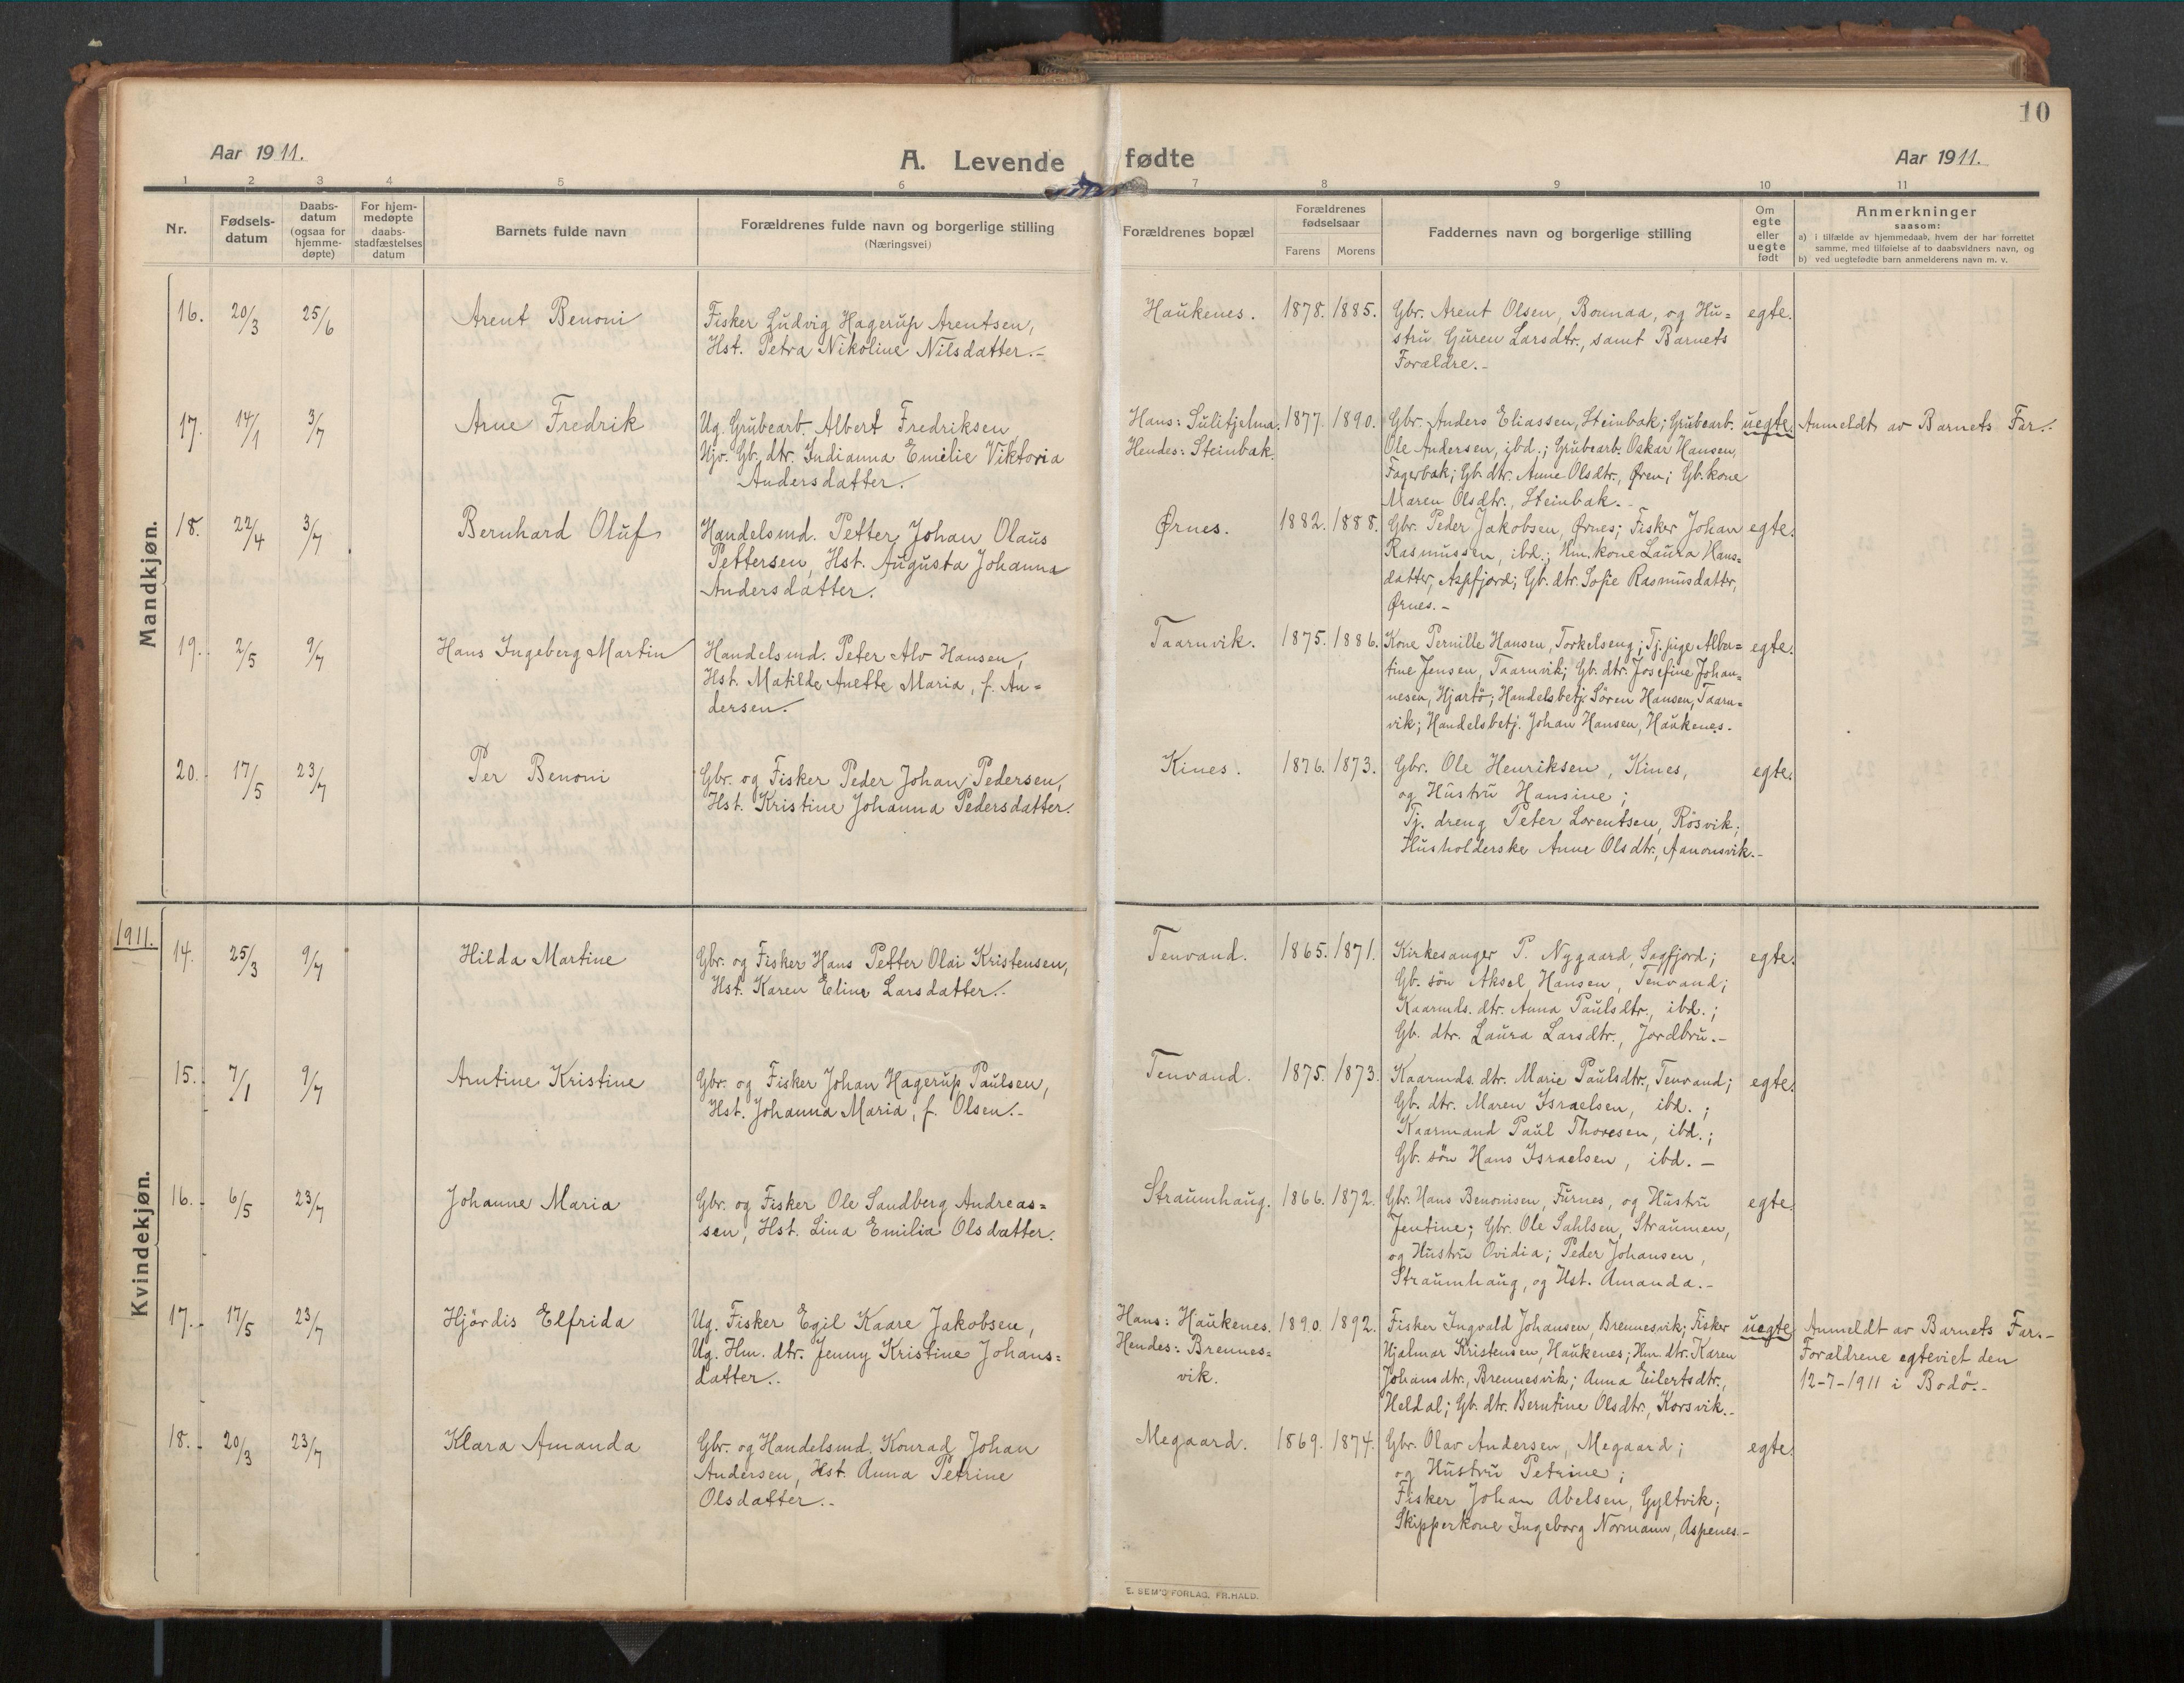 10
Aar 1911.
A. Levende fødte
Aar 1911.
1 2 3 4 5 6 7 8 9 10 11
Nr.
Fødsels-
datum
Daabs-
datum
(ogsaa for
hjemme-
døpte)
For hjem-
medøpte
daabs-
stadfæstelses
datum
Barnets fulde navn
Forældrenes fulde navn og borgerlige stilling
(Næringsvei)
Forældrenes bopæl
Forældrenes
fødselsaar
Farens Morens
Faddernes navn og borgerlige stilling
Om
egte
eller
uegte
født
Anmerkninger
saasom:
a) i tilfælde av hjemmedaab, hvem der har forrettet
samme, med tilføielse af to daabsvidners navn, og
b) ved uegtefødte barn anmelderens navn m. v.
Mandkjøn.
16. 20/3 25/6 Arent Benoni
Fisker Ludvig Hagerup Arentsen,
Hst. Petra Nikoline Nilsdatter.-
Haukenes. 1878. 1885.
Gbr. Arent Olsen, Bonnaa, og Hu=
stru Guren Larsdtr., samt Barnets
Forældre.-
egte.
17. 14/1 3/7 Arne Fredrik
Ug. Grubearb. Albert Fredriksen
Ugv. Gb. dtr. Indianna Emelie Viktoria
Andersdatter.
Hans: Sulitjelma. 1877. 1890.
Hendes: Steinbak.
Gbr. Anders Eliassen, Steinbak; Grubearb.
Ole Andersen, ibd.; Grubearb. Oskar Hansen,
Fagerbak; Gb. dtr. Anne Olsdtr., Øren; Gb. kone
Maren Olsdtr., Steinbak.-
uegte. Anmeldt av Barnets Far.-
18. 22/4 3/7 Bernhard Oluf
Handelsmd. Petter Johan Olaus
Pettersen, Hst. Augusta Johanna
Andersdatter.
Ørnes. 1882. 1888.
Gbr. Peder Jakobsen, Ørnes; Fisker Johan
Rasmussen, ibd.; Hm. kone Laura Hans=
datter, Aspfjord; Gb. dtr. Sofie Rasmusdatter,
Ørnes.-
egte.
19. 2/5 9/7 Hans Ingeberg Martin
Handelsmd. Peter Alv Hansen,
Hst. Matilde Anette Maria, f. An=
dersen.
Taarnvik. 1875. 1886.
Kone Pernille Hansen, Torkelseng; Tj. pige Alber=
tine Jensen, Taarnvik; Gb. dtr. Josefine Johan=
nesen, Hjartö; Handelsbetj. Sören Hansen, Taarn=
vik; Handelsbetj. Johan Hansen, Haukenes.-
egte.
20. 17/5 23/7 Per Benoni
Gbr. og Fisker Peder Johan Pedersen,
Hst. Kristine Johanna Pedersdatter.
Kines. 1876. 1873.
Gbr. Ole Henriksen, Kines,
og Hustru Hansine;
Tj. dreng Peter Lorentsen, Rösvik;
Husholderske Anne Olsdtr., Aanonsvik.-
egte.
1911.
Kvindekjøn.
14. 25/3 9/7 Hilda Martine
Gbr. og Fisker Hans Petter Olai Kristensen,
Hst. Karen Eline Larsdatter.
Tenvand. 1865. 1871.
Kirkesanger P. Nygaard, Sagfjord;
Gb. sön Aksel Hansen, Tenvand;
Kaarmds. dtr. Anna Paulsdtr., ibd.;
Gb. dtr. Laura Larsdtr., Jordbru.-
egte.
15. 7/1 9/7 Arntine Kristine
Gbr. og Fisker Johan Hagerup Paulsen,
Hst. Johanna Maria, f. Olsen.-
Tenvand. 1875. 1873.
Kaarmds. dtr. Marie Paulsdtr., Tenvand;
Gb. dtr. Maren Israelsen, ibd.;
Kaarmand Paul Thoresen, ibd.;
Gb. sön Hans Israelsen, ibd.-
egte.
16. 6/5 23/7 Johanne Maria
Gbr. og Fisker Ole Sandberg Andreas=
sen, Hst. Lina Emilia Olsdatter.
Straumhaug. 1866. 1872.
Gbr. Hans Benonisen, Furnes, og Hustru
Jentine; Gbr. Ole Sahlsen, Straumen,
og Hustru Ovidia; Peder Johansen,
Straumhaug, og Hst. Amanda.-
egte.
17. 17/5 23/7 Hjördis Elfrida
Ug. Fisker Egil Kaare Jakobsen,
Ug. Hm. dtr. Jenny Kristine Johans=
datter.
Hans: Haukenes. 1890. 1892.
Hendes: Brennes=
vik.
Fisker Ingvald Johansen, Brennesvik; Fisker
Hjalmar Kristensen, Haukenes; Hm. dtr. Karen
Johansdtr., Brennesvik; Anna Eilertsdtr.,
Heldal; Gb. dtr. Berntine Olsdtr., Korsvik.-
uegte. Anmeldt av Barnets Far.-
Forældrene egteviet den
12-7-1911 i Bodö.-
18. 20/3 23/7 Klara Amanda
Gbr. og Handelsmd. Konrad Johan
Andersen, Hst. Anna Petrine
Olsdatter.-
Megaard. 1869. 1874.
Gbr. Olav Andersen, Megaard;
og Hustru Petrine;
Fisker Johan Abelsen, Gyltvik;
Skipperkone Ingeborg Normann, Aspenes.-
egte.
E. SEM'S FORLAG, FR.HALD.